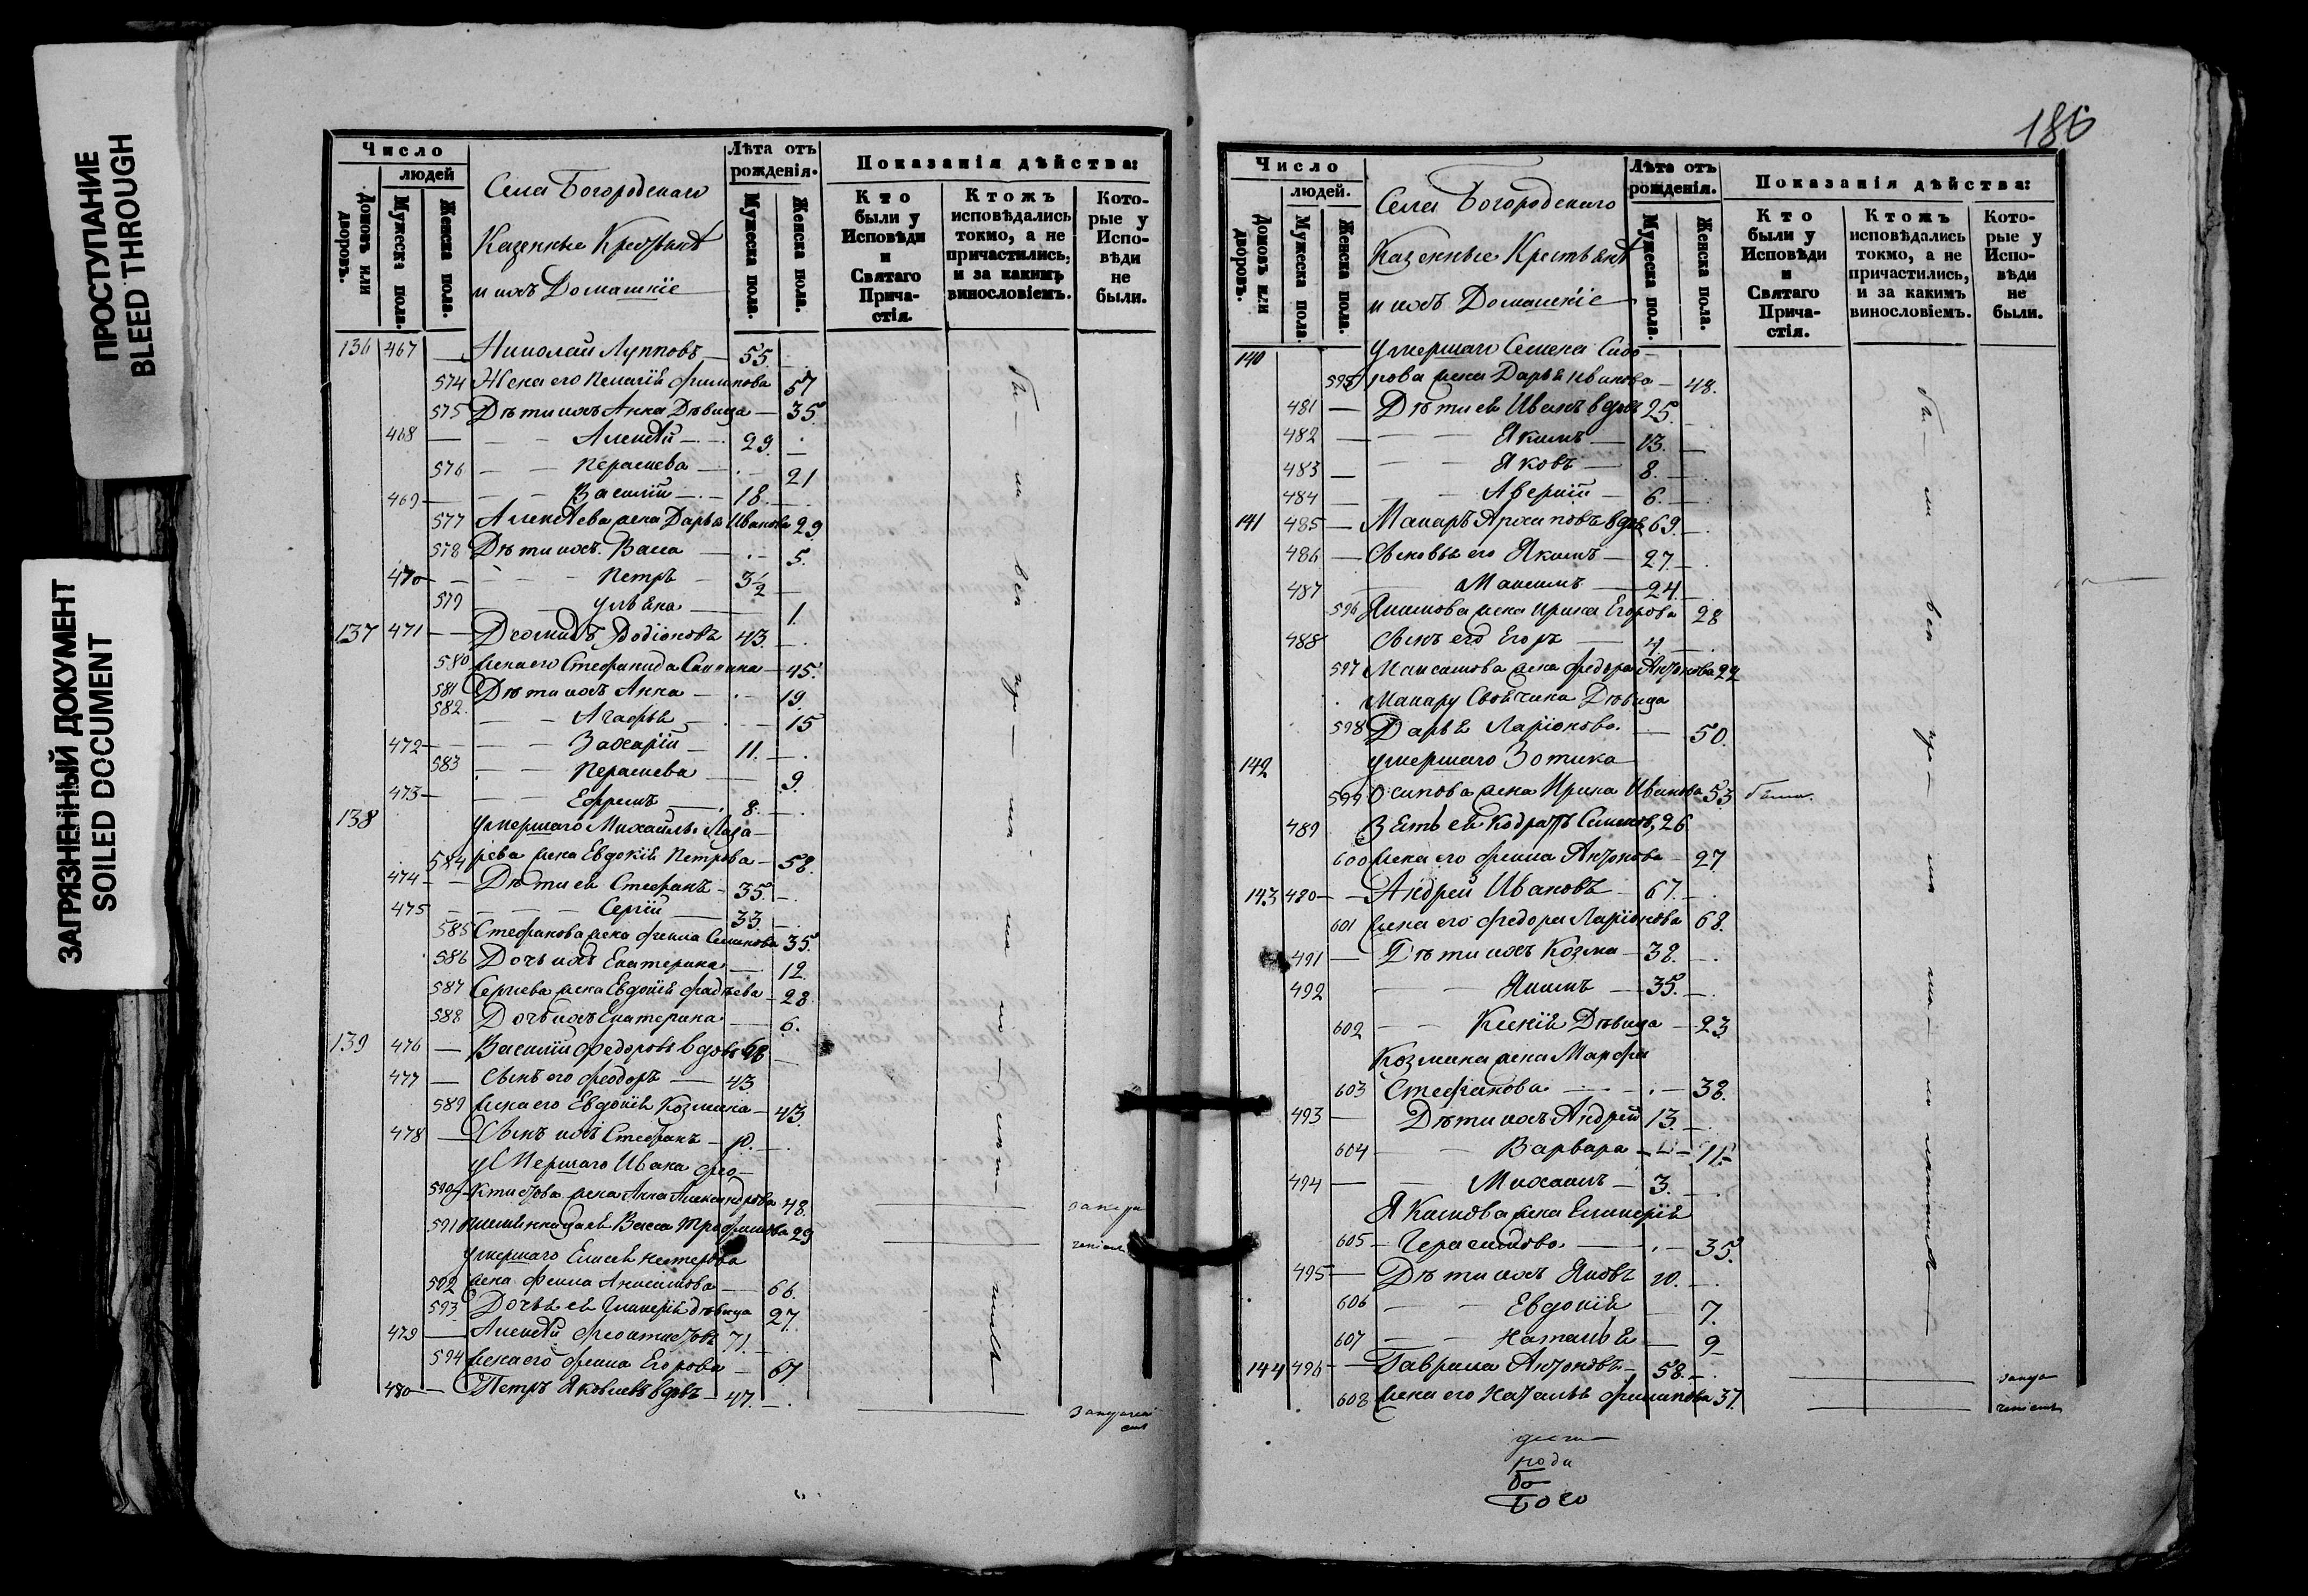 ПРОСТУПАНИЕ
BLEED THROUGH
ЗАГРЯЗНЕННЫЙ ДОКУМЕНТ
SOILED DOCUMENT
Число
людей
Домовъ или дворовъ.
Мужеска пола.
Женска пола.
Села Богородскаго
Казенные Крестьянѣ
и ихъ Домашніе
Лѣта отъ рожденія.
Мужеска пола.
Женска пола.
Показанія дѣйства:
Кто были у Исповѣди и Святаго Причастія.
Ктожъ исповѣдались токмо, а не причастились, и за какимъ винословіемъ.
Которые у Исповѣди не были.
136 467 — Николай Лупповъ — 55.
574 Жена его Пелагія Филипова 57
575 Дѣти ихъ Анна Дѣвица — 35.
468 — — Алексѣй — 29.
576 — — Парасчева — 21
469 — — Василій — 18.
577 Алексѣева жена Дарья Иванова 29
578 Дѣти ихъ Васса — 5.
470 — — Петръ — 3½
579 — Ульяна — 1.
137 471 — Диомидъ Родіоновъ 43.
580 жена его Стефанида Саввина — 45.
581 Дѣти ихъ Анна — 19.
582. — — Агафья — 15
472 — — Захарій — 11.
583 — — Парасчева — 9.
473 — — Ефремъ — 8.
138 умершаго Михаила Лаза-
584 рева жена Евдокія Петрова — 58.
474 — Дѣти ея Стефанъ — 35.
475 — — Сергій — 33.
585 Стефанова жена Фекла Семенова 35.
586 Дочь ихъ Екатерина — 12.
587 Сергиева жена Евдокія Фадѣева — 28.
588 Дочь ихъ Екатерина — 6.
139 476 — Василій Федоровъ вдовъ 68
477 — Сынъ его Феодоръ — 43
589 жена его Евдокія Козмина — 43.
478 — Сынъ ихъ Стефанъ — 10.
умершаго Ивана Фео-
590 ктистова жена Анна Александрова 48.
591 Васса Трофимова 29
умершаго Елисея Нестерова
592 жена Фекла Анисимова — 66.
593 Дочь ея Гликерія дѣвица 27.
479 — Алексѣй Феоктистовъ 71.
594 жена его Фекла Егорова — 67
480 — Петръ Яковлевъ вдовъ — 47.
186
Число
людей.
Домовъ или дворовъ.
Мужеска пола.
Женска пола.
Села Богородскаго
Казенные Крестьянѣ
и ихъ Домашніе
Лѣта отъ рожденія.
Мужеска пола.
Женска пола.
Показанія дѣйства:
Кто были у Исповѣди и Святаго Причастія.
Ктожъ исповѣдались токмо, а не причастились, и за какимъ винословіемъ.
Которые у Исповѣди не были.
140 умершаго Семена Сидо-
595 рова жена Дарья Иванова — 48.
481 — Дѣти ея Иванъ вдовъ 25.
482 — — Якимъ — 13.
483 — — Яковъ — 8.
484 — — Аверкій — 6.
141 485 — Макаръ Архиповъ вдовъ 69.
486 — Сыновья его Якимъ — 27.
487 — Максимъ — 24.
596 Якимова жена Ирина Егорова 28
488 Сынъ его Егоръ — 4.
597 Максимова жена Федора Антонова 22
Макару Своячина Дѣвица
598 Дарья Ларіонова. — 50.
142 умершаго Зотика
599 Осипова жена Ирина Иванова 53 была.
489 Зять ея Кодратъ Симоновъ 26.
600 жена его Фекла Антонова — 27
143 480 — Андрей Ивановъ — 67.
601 жена его Федора Ларіонова 68.
491 — Дѣти ихъ Козма — 38.
492 — — Якимъ — 35.
602 — — Ксенія Дѣвица — 23
Козмина жена Марфа
603 Стефанова — 38.
493 — Дѣти ихъ Андрей 13.
604 — — Варвара — 11.
494 — — Михаилъ — 3.
Якимова жена Гликерія
605 — Герасимова — 35.
495 — Дѣти ихъ Яковъ 10.
606 — — Евдокія — 7.
607 — — Наталья — 9
144 496 — Гаврила Антоновъ — 58.
608 жена его Наталья Филипова 37.
рода
Бо
Бого